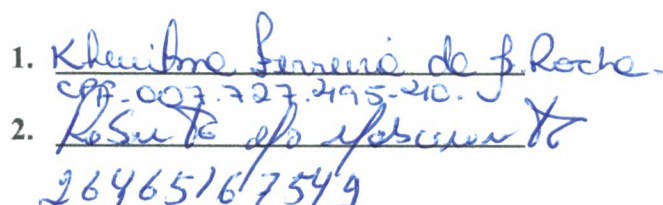 1. Kheuilma Ferreira de J. Rocha.
CPF-007.727.295-20.
2. do Nascimento
26465167549